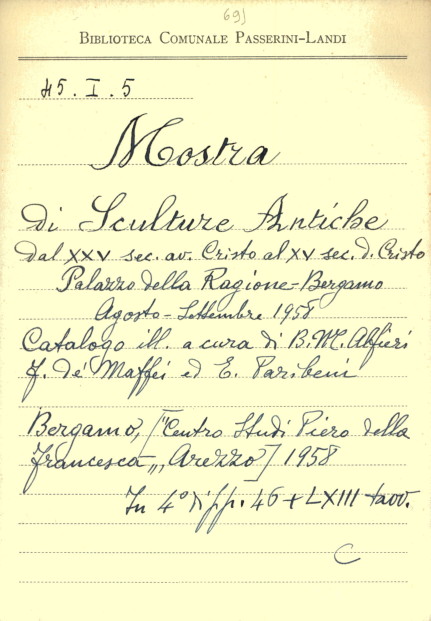 691
BIBLIOTECA COMUNALE PASSERINI-LANDI
45. I. 5
Mostra
di Sculture Antiche
dal XXV sec. av. Cristo al XV sec. d. Cristo
Palazzo della Ragione-Bergamo
Agosto-Settembre 1958
Catalogo ill. a cura di B. M. Alfieri
F. de' Maffei ed E. Paribeni
Bergamo, ["Centro Studi Piero della
Francesca„, Arezzo] 1958
In 4° di pp. 46 + LXIII tavv.
C